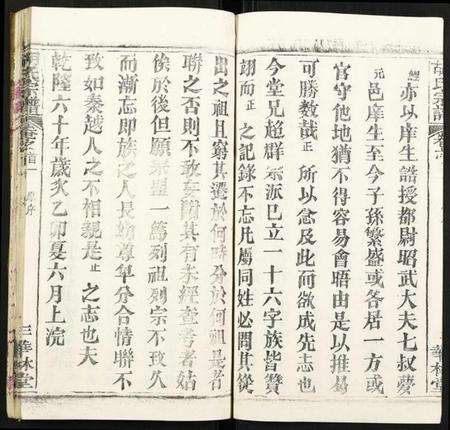 胡氏宗譜
華林堂
鯉亦以庠生誥授都尉昭武大夫七叔夢
元邑庠生至今子孫繁盛或各居一方或
官守他地猶不得容易會晤由是以推曷
可勝數哉正所以念及此而欲成先志也
今堂兄超群宗派已立一十六字族皆贊
翊而正之記錄不忘凡屬同姓必問其從
出之祖且窮其遷於何時分於何祖長者
聯之否則不敢妄附其有未經查考者姑
俟於後但願 盟一篤列祖列宗不致久
而漸忘即族之人長幼尊卑分合情聯不
致如秦越人之不相親是正之志也夫
乾隆六十年歲次乙卯夏六月上浣
胡氏宗譜
卷之首
原序
三
華林堂